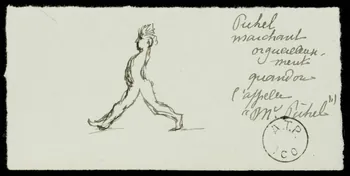 Pichel
marchant
orgueilleuse-
ment
quand on
l'appelle
"Mr Pichel"
A.T.P.